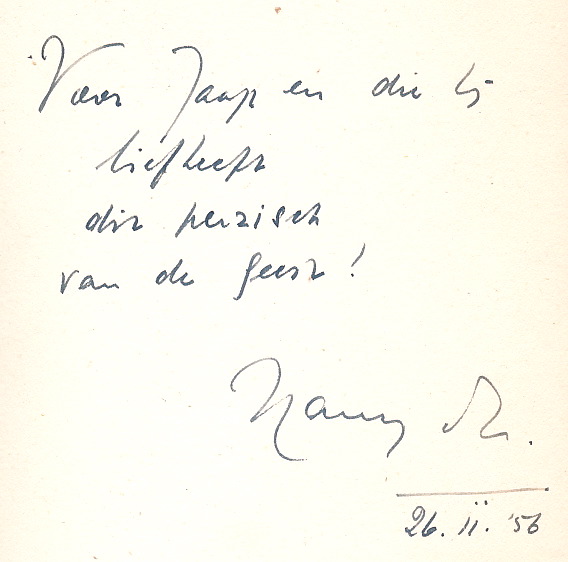 Voor Jaap en die hij
liefheeft
dit perzisch
van de geest!
Harry M.
26.II.'56